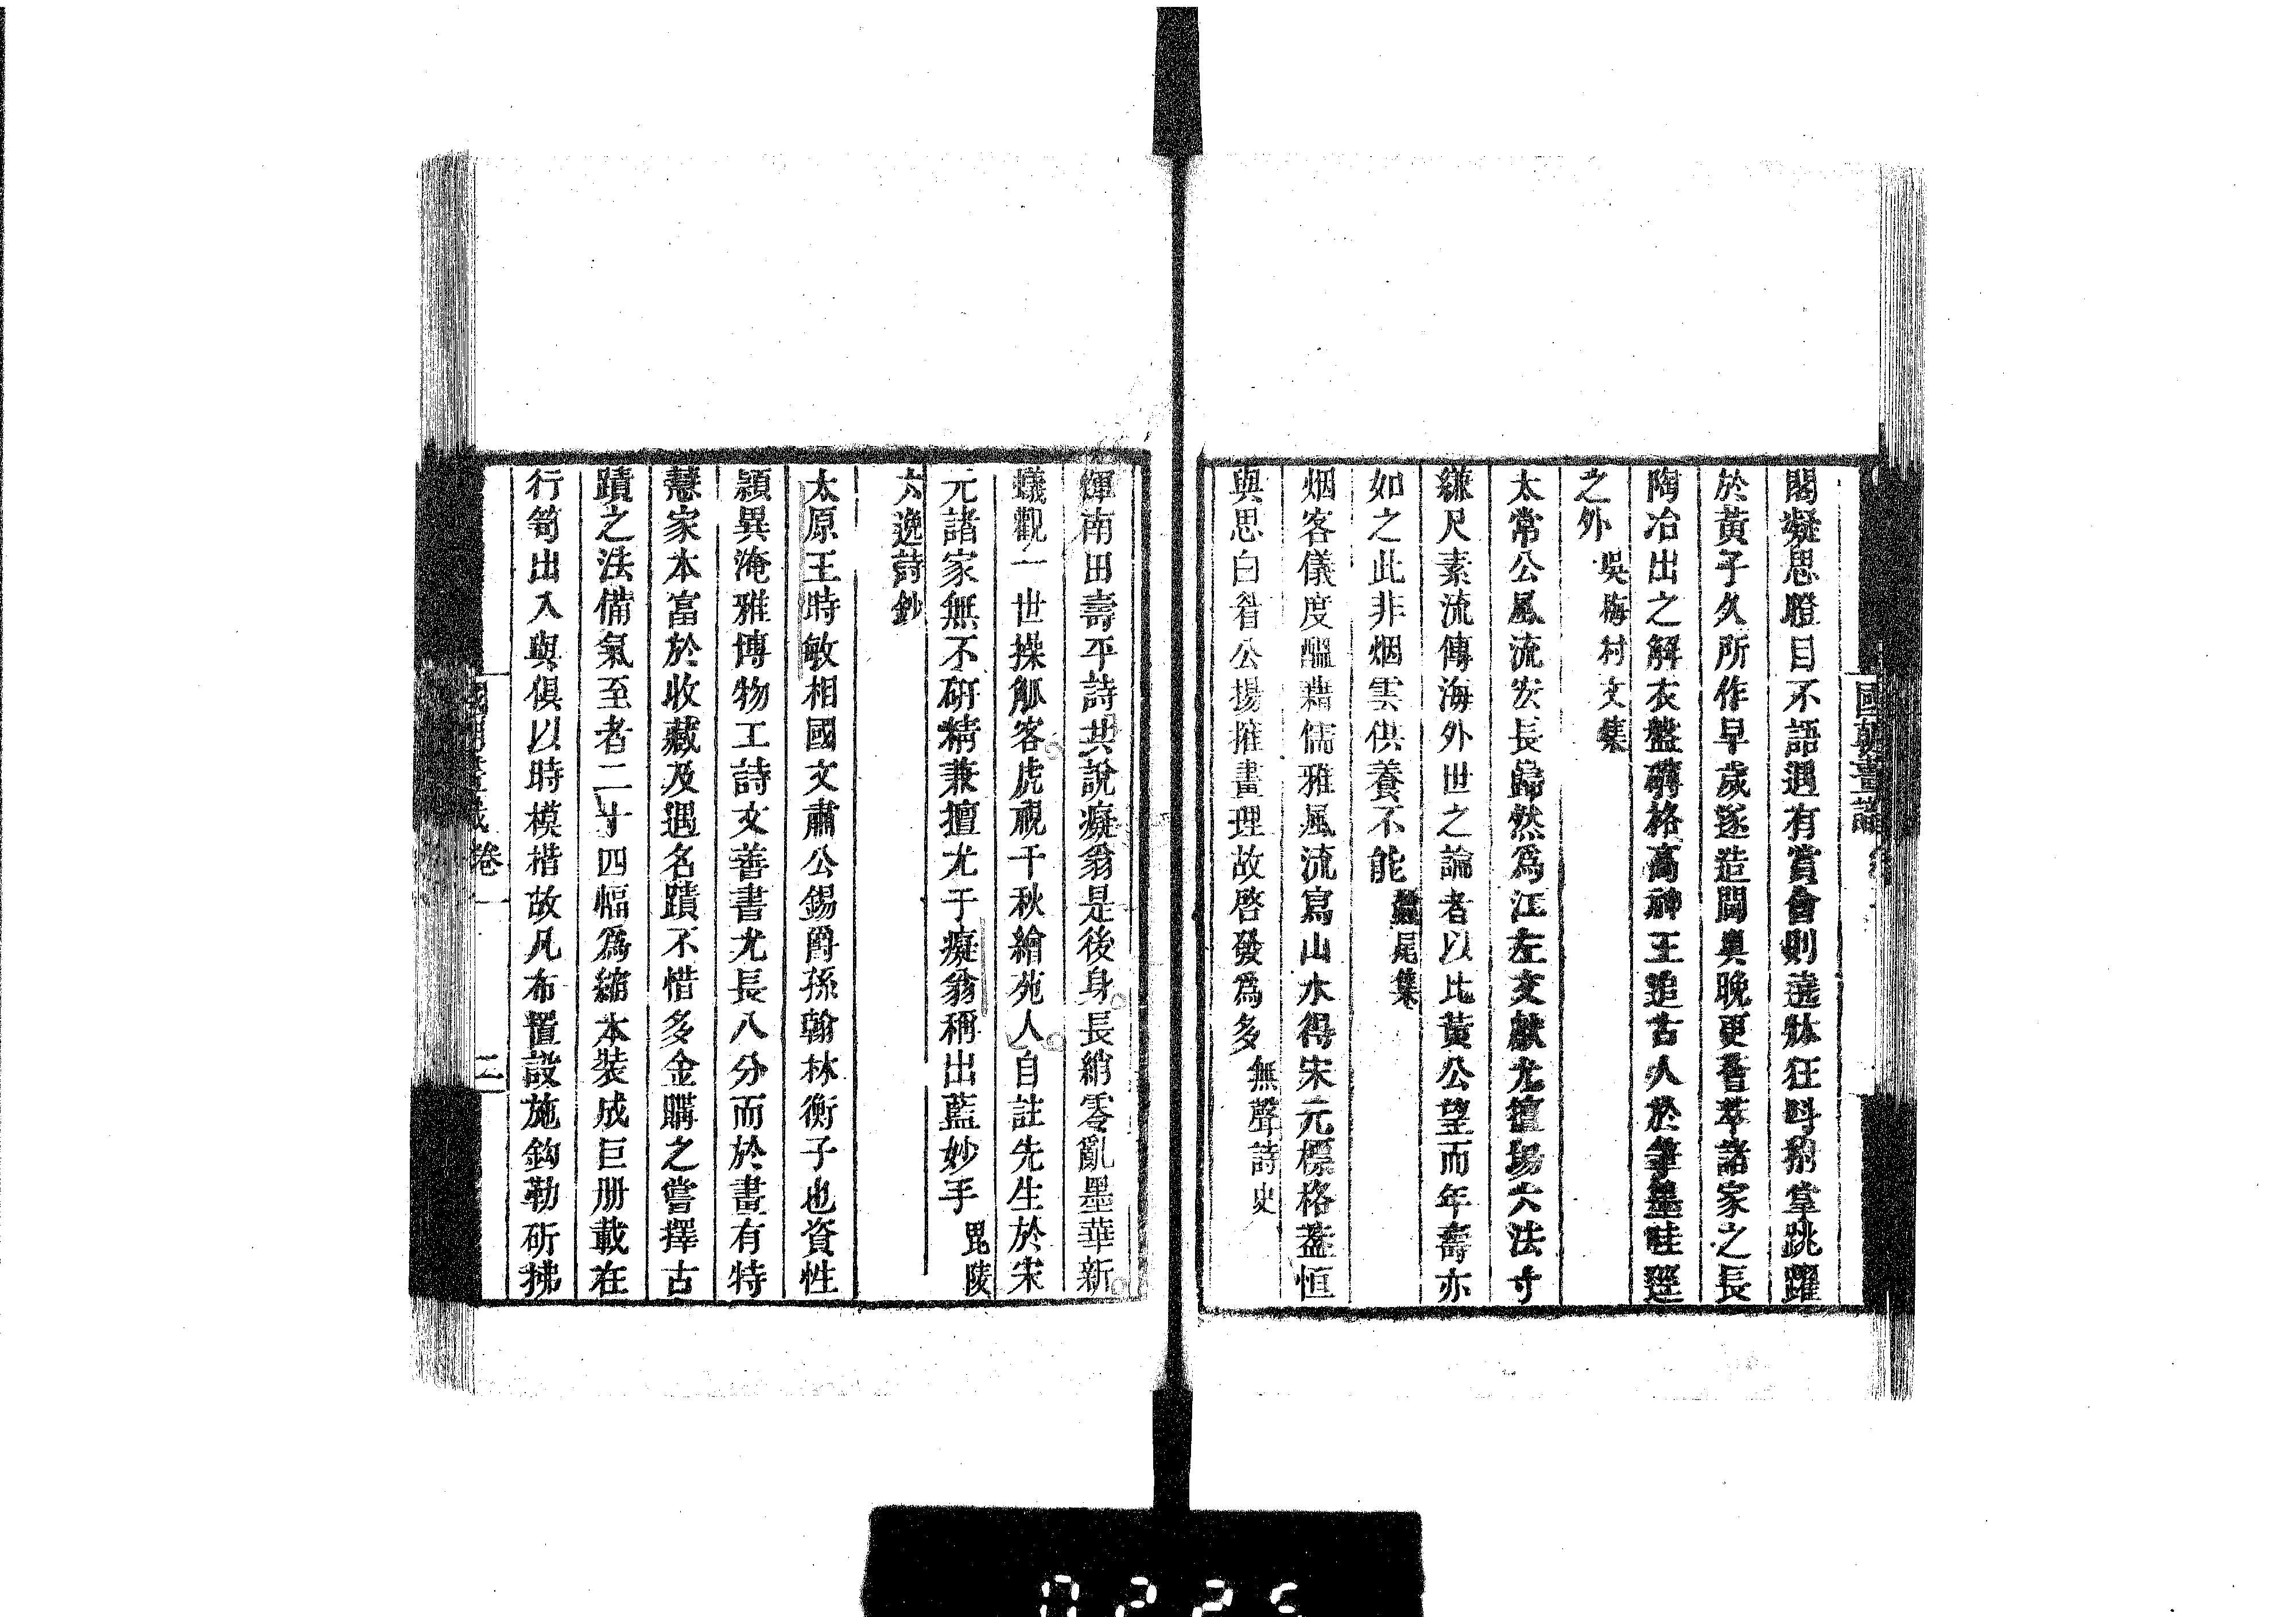 國朝畫識
閣凝思瞪目不語遇有賞會則遶牀狂呌拊掌跳躍
於黃子久所作早歲遂造閫奧晚更薈萃諸家之長
陶冶出之解衣盤礴格高神王追古人於筆墨畦逕
之外 吳梅村文集
太常公風流宏長巋然爲江左文獻尤擅場六法寸
縑尺素流傳海外世之論者以比黃公望而年壽亦
如之此非烟雲供養不能 蠶尾集
烟客儀度醞藉儒雅風流寫山水得宋元標格蓋恒
與思白眉公揚搉畫理故啓發爲多 無聲詩史
惲南田壽平詩共說癡翁是後身長綃零亂墨華新
蟻觀一世操觚客虎視千秋繪苑人自註先生於宋
元諸家無不研精兼擅尤于癡翁稱出藍妙手 毘陵
六逸詩鈔
太原王時敏相國文肅公錫爵孫翰林衡子也資性
穎異淹雅博物工詩文善書尤長八分而於畫有特
慧家本富於收藏及遇名蹟不惜多金購之嘗擇古
蹟之法備氣至者二十四幅爲縮本裝成巨册載在
行笥出入與俱以時模楷故凡布置設施鈎勒斫拂
國朝畫識 卷一 二
0225